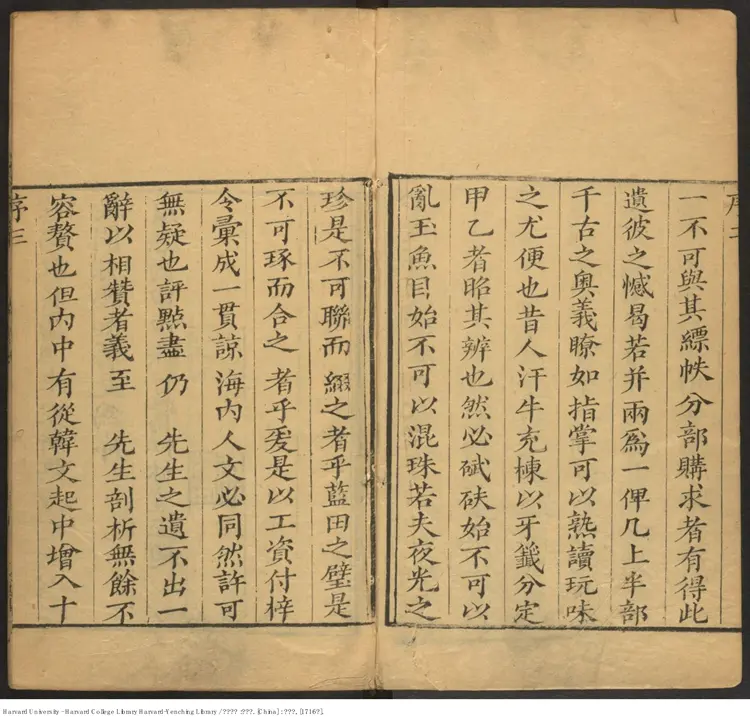 序二
一不可與其縹帙分部購求者有得此
遺彼之憾曷若并兩為一俾几上半部
千古之奧義瞭如指掌可以熟讀玩味
之尤便也昔人汗牛充棟以牙籤分定
甲乙者昭其辨也然必碔砆始不可以
亂玉魚目始不可以混珠若夫夜光之
珍是不可聯而綴之者乎藍田之璧是
不可琢而合之者乎爰是以工資付梓
令彙成一貫諒海內人文必同然許可
無疑也評點盡仍先生之遺不出一
辭以相贊者義至先生剖析無餘不
容贅也但內中有從韓文起中增入十
序三
Harvard University - Harvard College Library Harvard-Yenching Library / ???? :???. [China] : ???, [1716?].